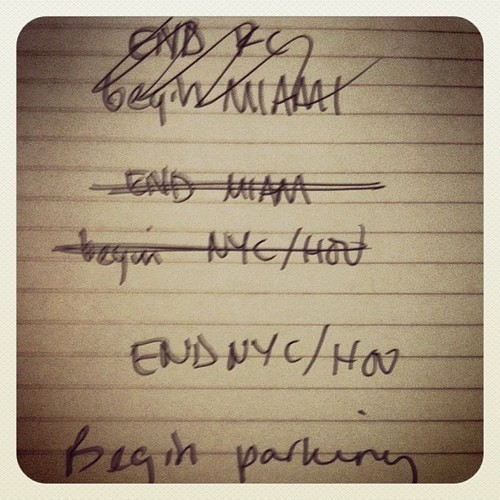 END KC
begin MIAMI
END MIAMI
begin NYC/HOU
END NYC/HOU
Begin parking